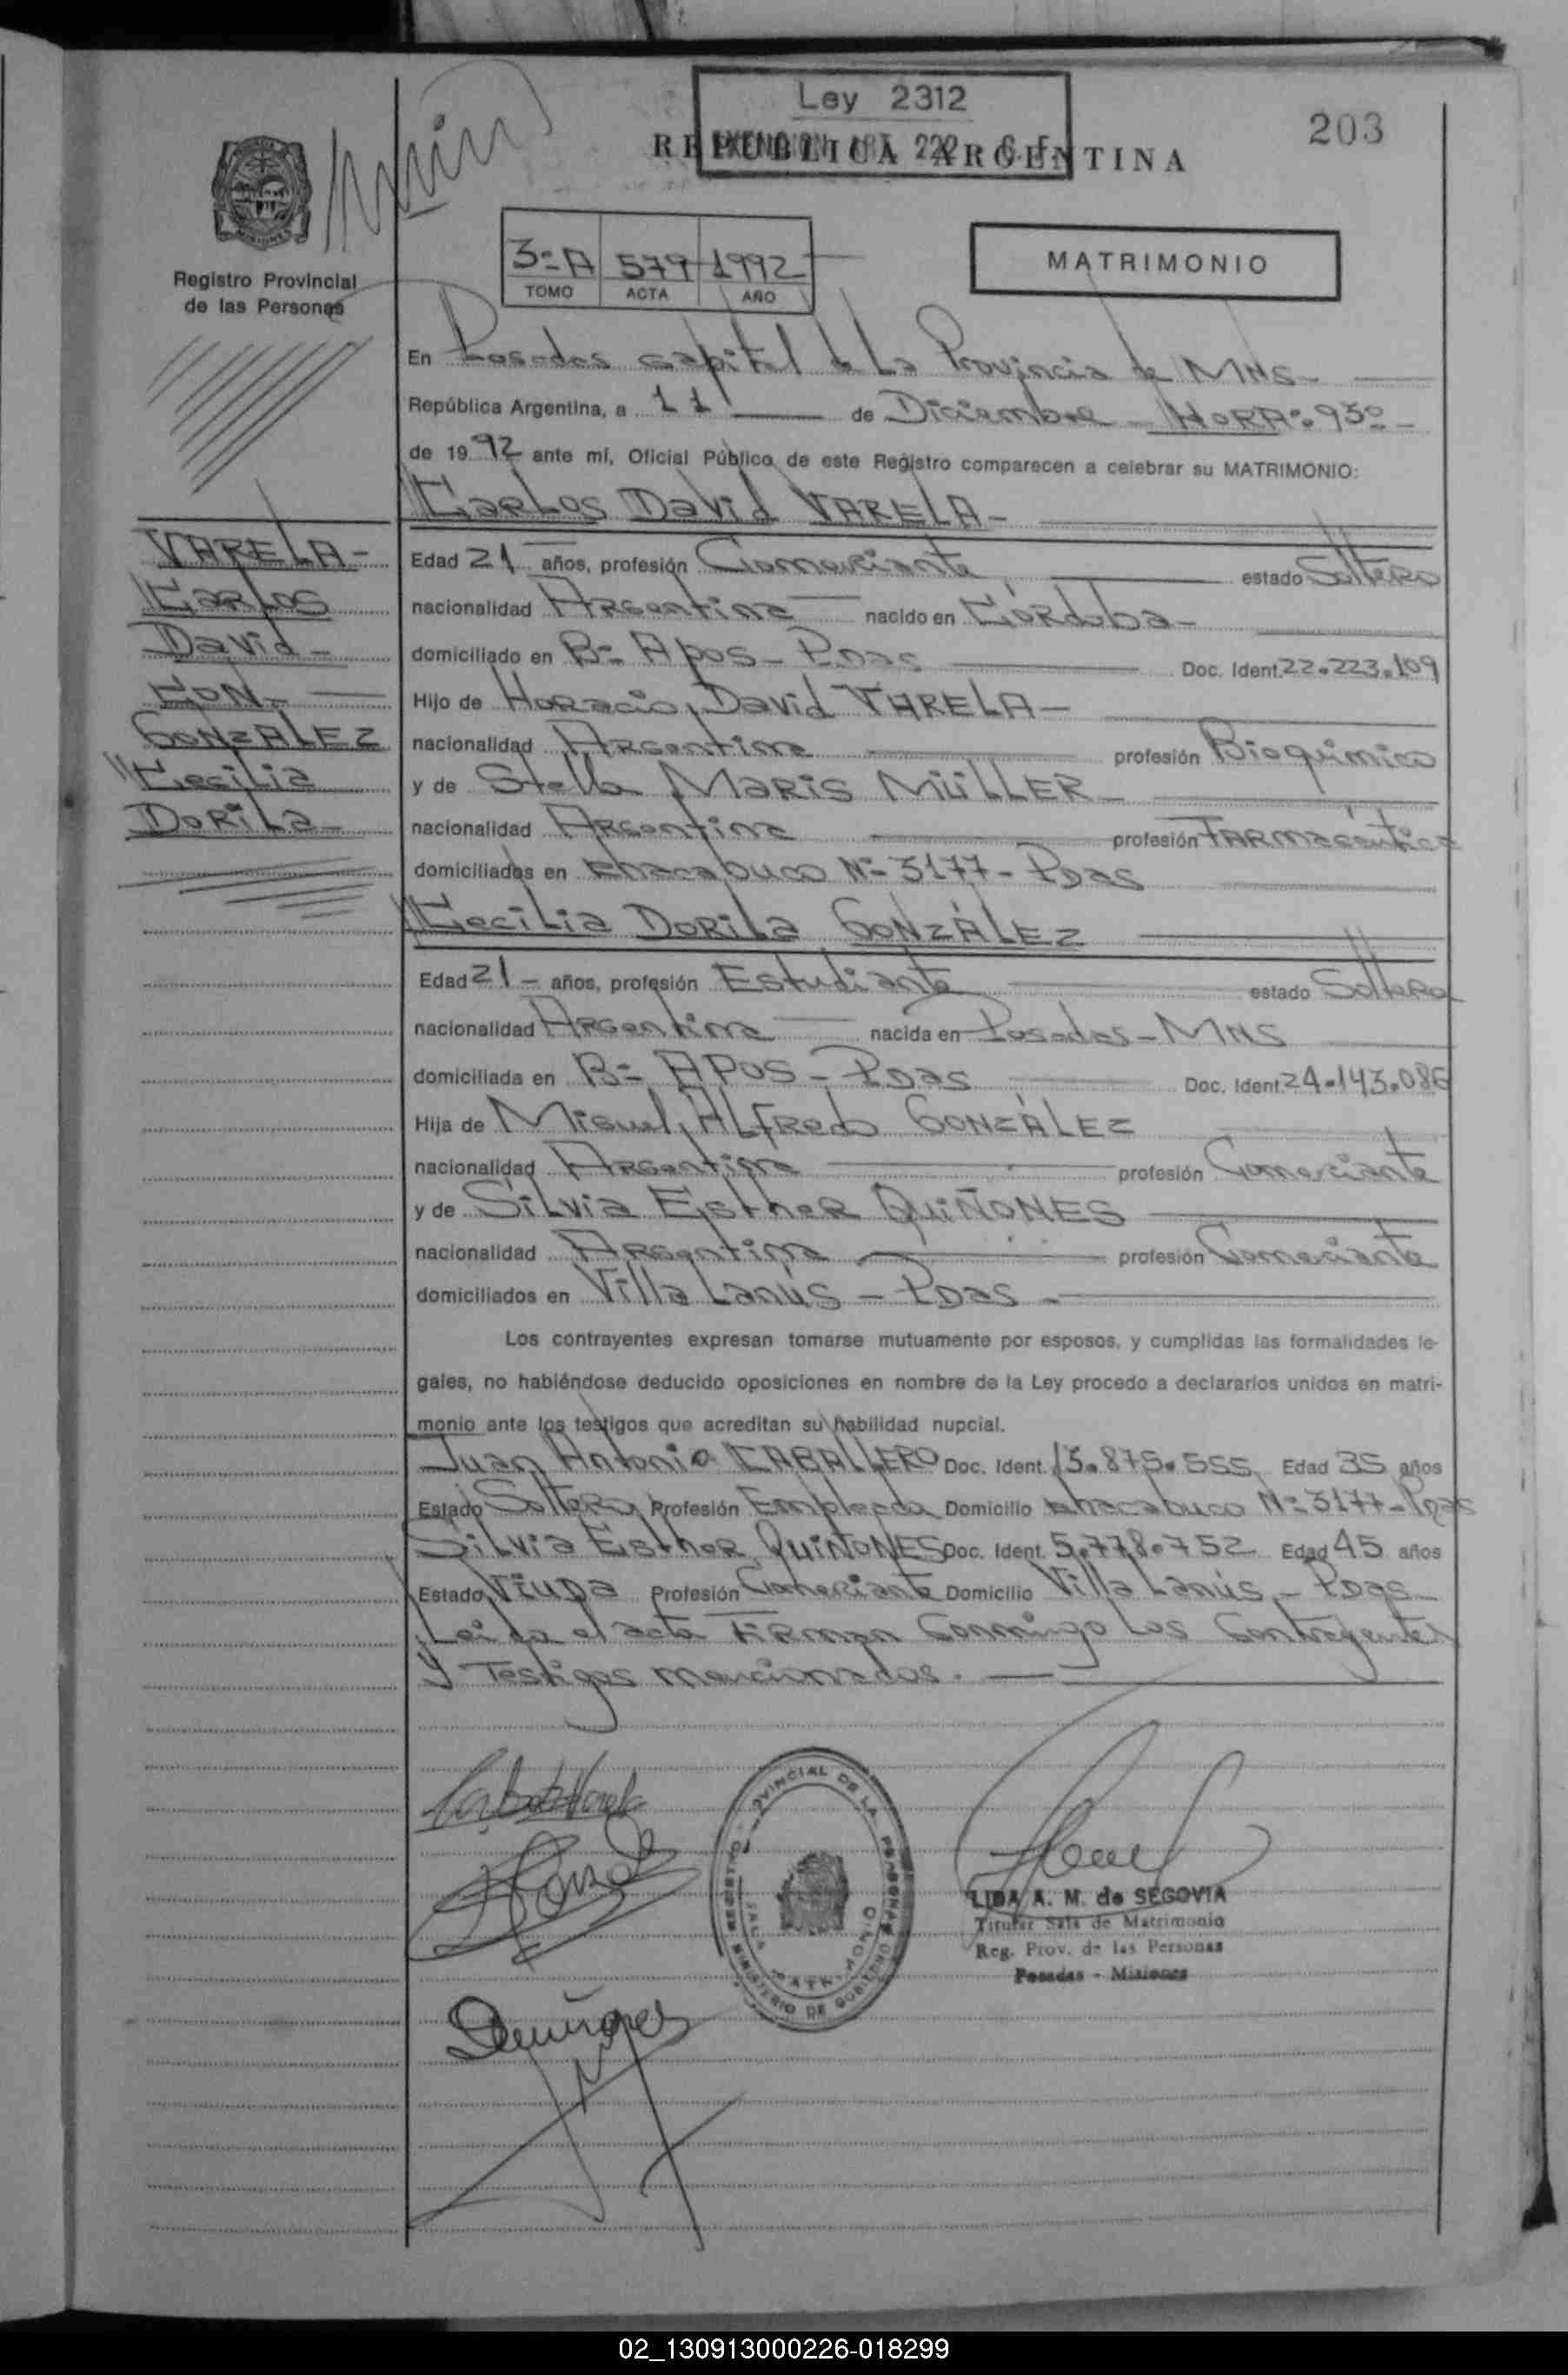 Ley 2312
EXENCION ART. 222 C. F.
REPUBLICA ARGENTINA
203
MISIONES
Registro Provincial
de las Personas
3=A 579 1992
TOMO ACTA AÑO
MATRIMONIO
En Posadas capital de la Provincia de MNS-
República Argentina, a 11 de Diciembre - HORA: 930 -
de 1992 ante mí, Oficial Público de este Registro comparecen a celebrar su MATRIMONIO:
Carlos David VARELA-
VARELA-
Carlos
David-
CON-
GONZALEZ
Cecilia
Dorila-
Edad 21 años, profesión Comerciante estado Soltero
nacionalidad Argentina nacido en Córdoba-
domiciliado en B= Apos- Pdas Doc. Ident. 22.223.109
Hijo de Horacio David VARELA-
nacionalidad Argentina profesión Bioquímico
y de Stella Maris MÜLLER-
nacionalidad Argentina profesión Farmacéutica
domiciliados en Chacabuco N= 3177- Pdas
Cecilia Dorila GONZÁLEZ
Edad 21- años, profesión Estudiante estado Soltera
nacionalidad Argentina nacida en Posadas-MNS
domiciliada en B= APOS- Pdas Doc. Ident. 24.143.086
Hija de Miguel Alfredo GONZÁLEZ
nacionalidad Argentina profesión Comerciante
y de Silvia Esther QUIÑONES
nacionalidad Argentina profesión Comerciante
domiciliados en Villa Lanús - Pdas-
Los contrayentes expresan tomarse mutuamente por esposos, y cumplidas las formalidades le-
gales, no habiéndose deducido oposiciones en nombre de la Ley procedo a declararlos unidos en matri-
monio ante los testigos que acreditan su habilidad nupcial.
Juan Antonio CABALLERO Doc. Ident. 13.875.555 Edad 35 años
Estado Soltero Profesión Empleado Domicilio Chacabuco N= 3177-Pdas
Silvia Esther QUIÑONES Doc. Ident. 5.778.752 Edad 45 años
Estado Viuda Profesión Comerciante Domicilio Villa Lanús - Pdas
Leida el acta Firman Conmigo Los Contrayentes
y Testigos mencionados.
REGISTRO PROVINCIAL DE LA PERSONAS
SALA MATRIMONIO
MINISTERIO DE GOBIERNO
LIDA A. M. de SEGOVIA
Titular Sala de Matrimonio
Reg. Prov. de las Personas
Posadas - Misiones
Quiñones
02_130913000226-018299